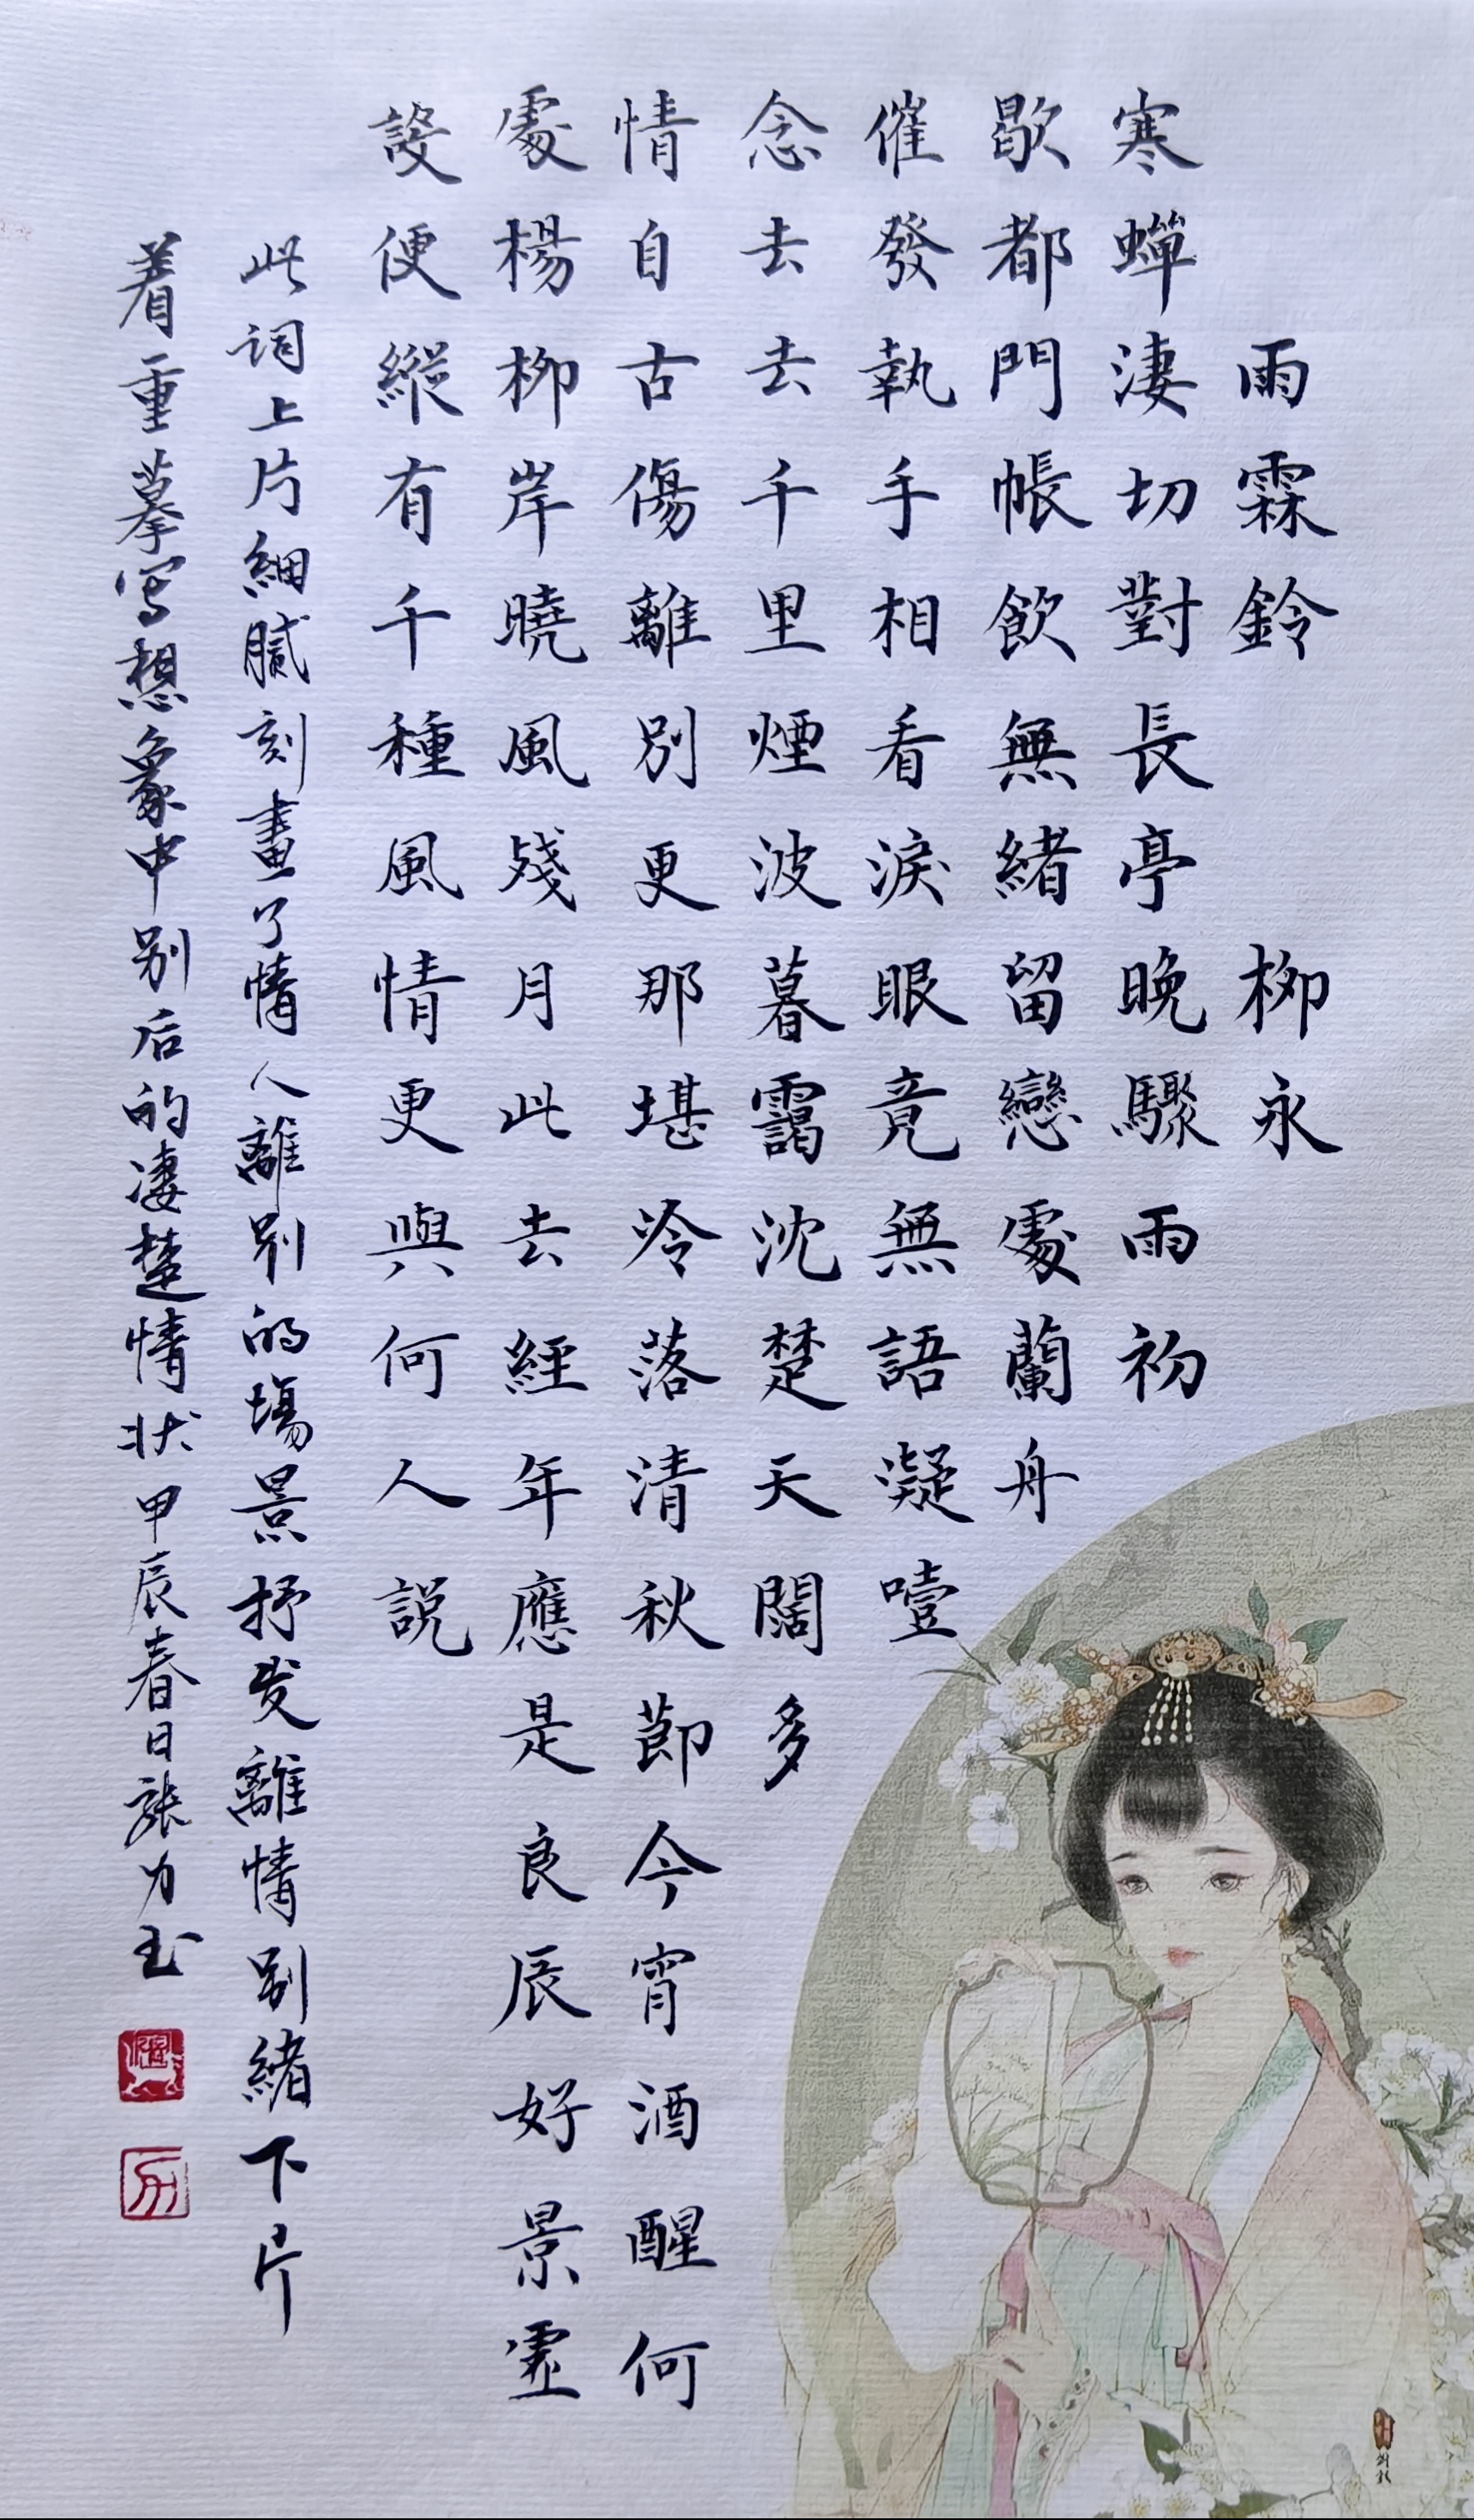 雨霖鈴 柳永
寒蟬淒切對長亭晚驟雨初
歇都門帳飲無緒留戀處蘭舟
催發執手相看淚眼竟無語凝噎
念去去千里煙波暮靄沈楚天闊多
情自古傷離別更那堪冷落清秋節今宵酒醒何
處楊柳岸曉風殘月此去經年應是良辰好景虛
設便縱有千種風情更與何人説
此词上片細膩刻畫了情人離别的場景抒发離情别緒下片
着重摹寫想象中别后的凄楚情状甲辰春日張力玉